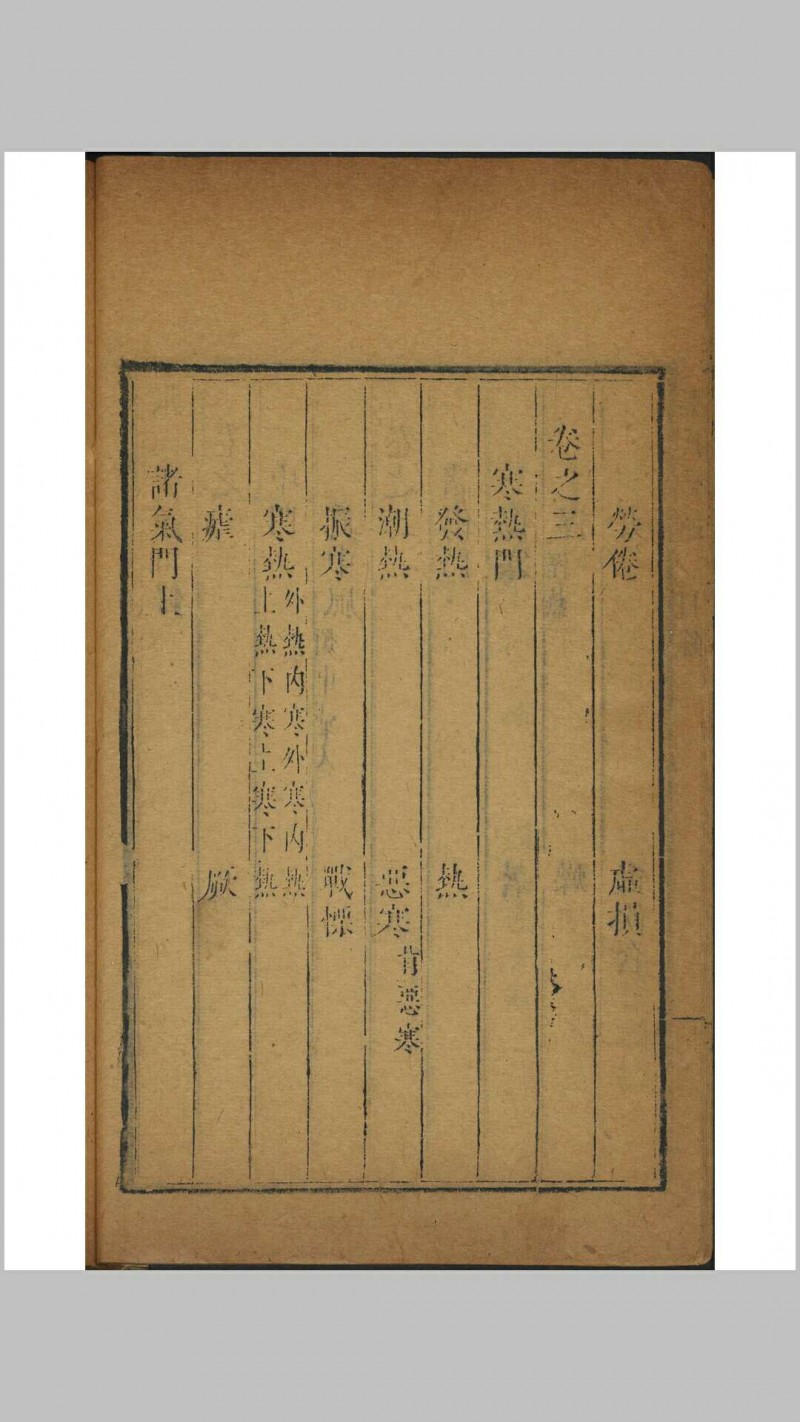 勞倦 虛損
卷之三
寒熱門
發熱 熱
潮熱 惡寒 背惡寒
振寒 戰慄
寒熱 外熱內寒外寒內熱
上熱下寒上寒下熱
瘧 厥
諸氣門上